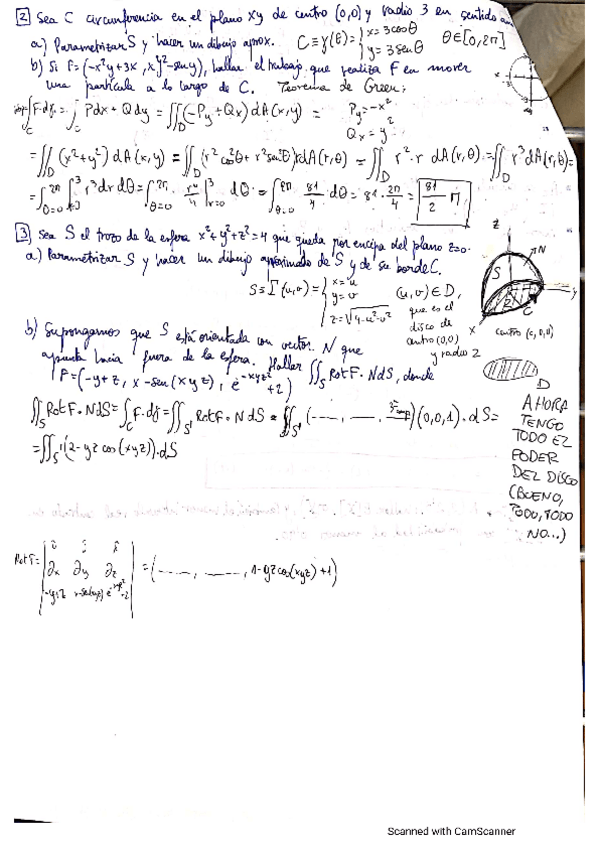 2 Sea C circunferencia en el plano xy de centro (0,0) y radio 3 en sentido an
a) Parametrizar S y hacer un dibujo aprox. C ≡ γ(θ) = { x = 3cosθ y = 3senθ θ∈[0,2π]
b) Si F=(-x²y+3x, xy²-sen y), hallar el trabajo que realiza F en mover
una partícula a lo largo de C. Teorema de Green:
∫_C F·dγ = ∫_C Pdx + Qdy = ∬_D (-Py + Qx) dA(x,y) = Py = -x² Qx = y²
= ∬_D (x²+y²) dA(x,y) = ∬_D (r²cos²θ + r²sen²θ) r dA(r,θ) = ∬_D r²·r dA(r,θ) = ∬_D r³ dA(r,θ) =
= ∫_{θ=0}^{2π} ∫_0^3 r³ dr dθ = ∫_{θ=0}^{2π} r⁴/4 |_{r=0}^3 dθ = ∫_{θ=0}^{2π} 81/4 dθ = 81·2π/4 = 81/2 π
3 Sea S el trozo de la esfera x²+y²+z²=4 que queda por encima del plano z=0.
a) Parametrizar S y hacer un dibujo aproximado de S y de su borde C.
S ≡ Γ(u,v) = { x = u y = v z = √(4-u²-v²) (u,v) ∈ D, que es el disco de centro (0,0) y radio 2
z
N
S
y
C
x
D
b) Supongamos que S está orientada con vector N que
apunta hacia fuera de la esfera. Hallar ∬_S Rot F · N dS, donde
F = (-y+z, x-sen(xyz), e^{-xyz²}+2)
∬_S Rot F · N dS = ∫_C F·dγ = ∬_{S'} Rot F · N dS = ∬_{S'} (......, ......, )(0,0,1)·dS =
= ∬_{S'} (2-yz cos(xyz))·dS
AHORA
TENGO
TODO EL
PODER
DEL DISCO
(BUENO,
TODO, TODO
NO...)
Rot F = | i j k ∂x ∂y ∂z -y+z x-sen(xyz) e^{-xyz²}+2 | = (......, ......, 1-yz cos(xyz)+1)
Scanned with CamScanner